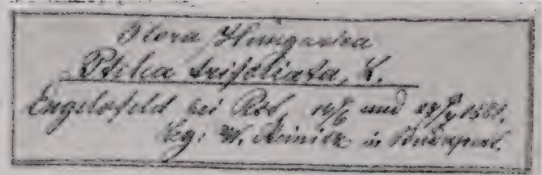 Flora Hungarica
Ptelea trifoliata, L.
Engelsfeld bei und 1881.
leg: W. Steinitz in Budapest.